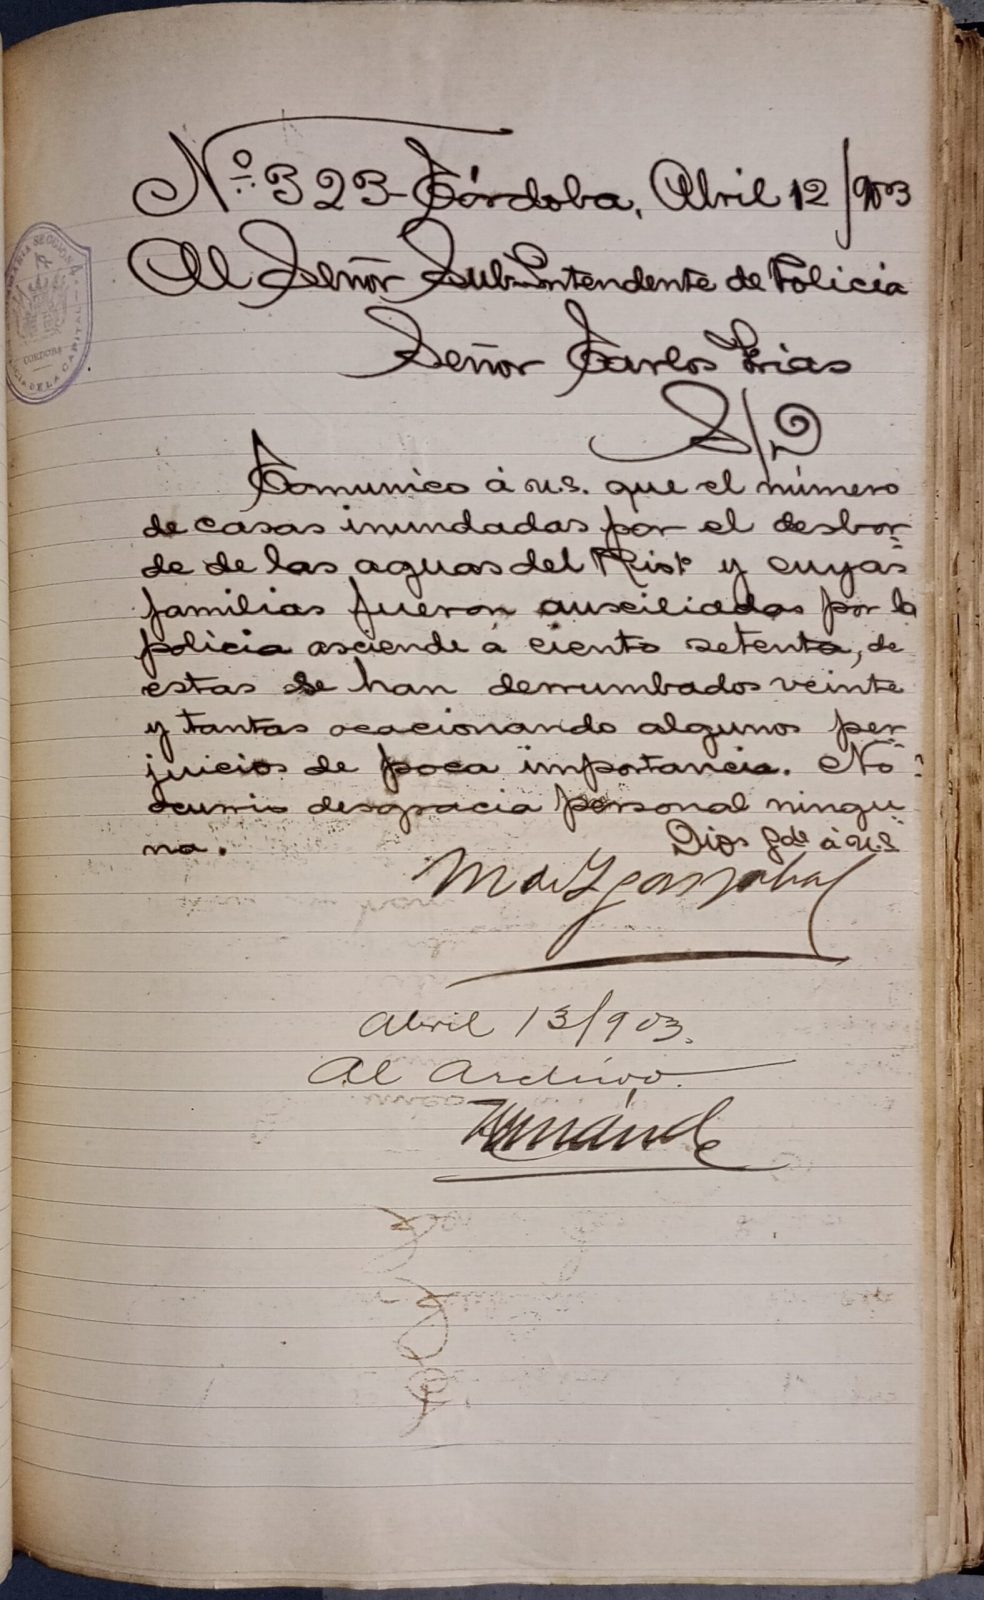 Nº 323 - Córdoba, Abril 12/903
Al Señor Sub-Intendente de Policia
Señor Carlos Frias
S/D
Comunico á u.s. que el número
de casas inundadas por el desbor-
de de las aguas del Rio 1º y cuyas
familias fueron auxiliadas por la
policia asciende á ciento setenta, de
estas se han derrumbados veinte
y tantas ocacionando algunos per-
juicios de poca importancia. No
ocurrio desgracia personal ningu-
na. Dios gde á u.s
M de Ygarzabal
Abril 13/903.
Al Archivo.
CORDOBA